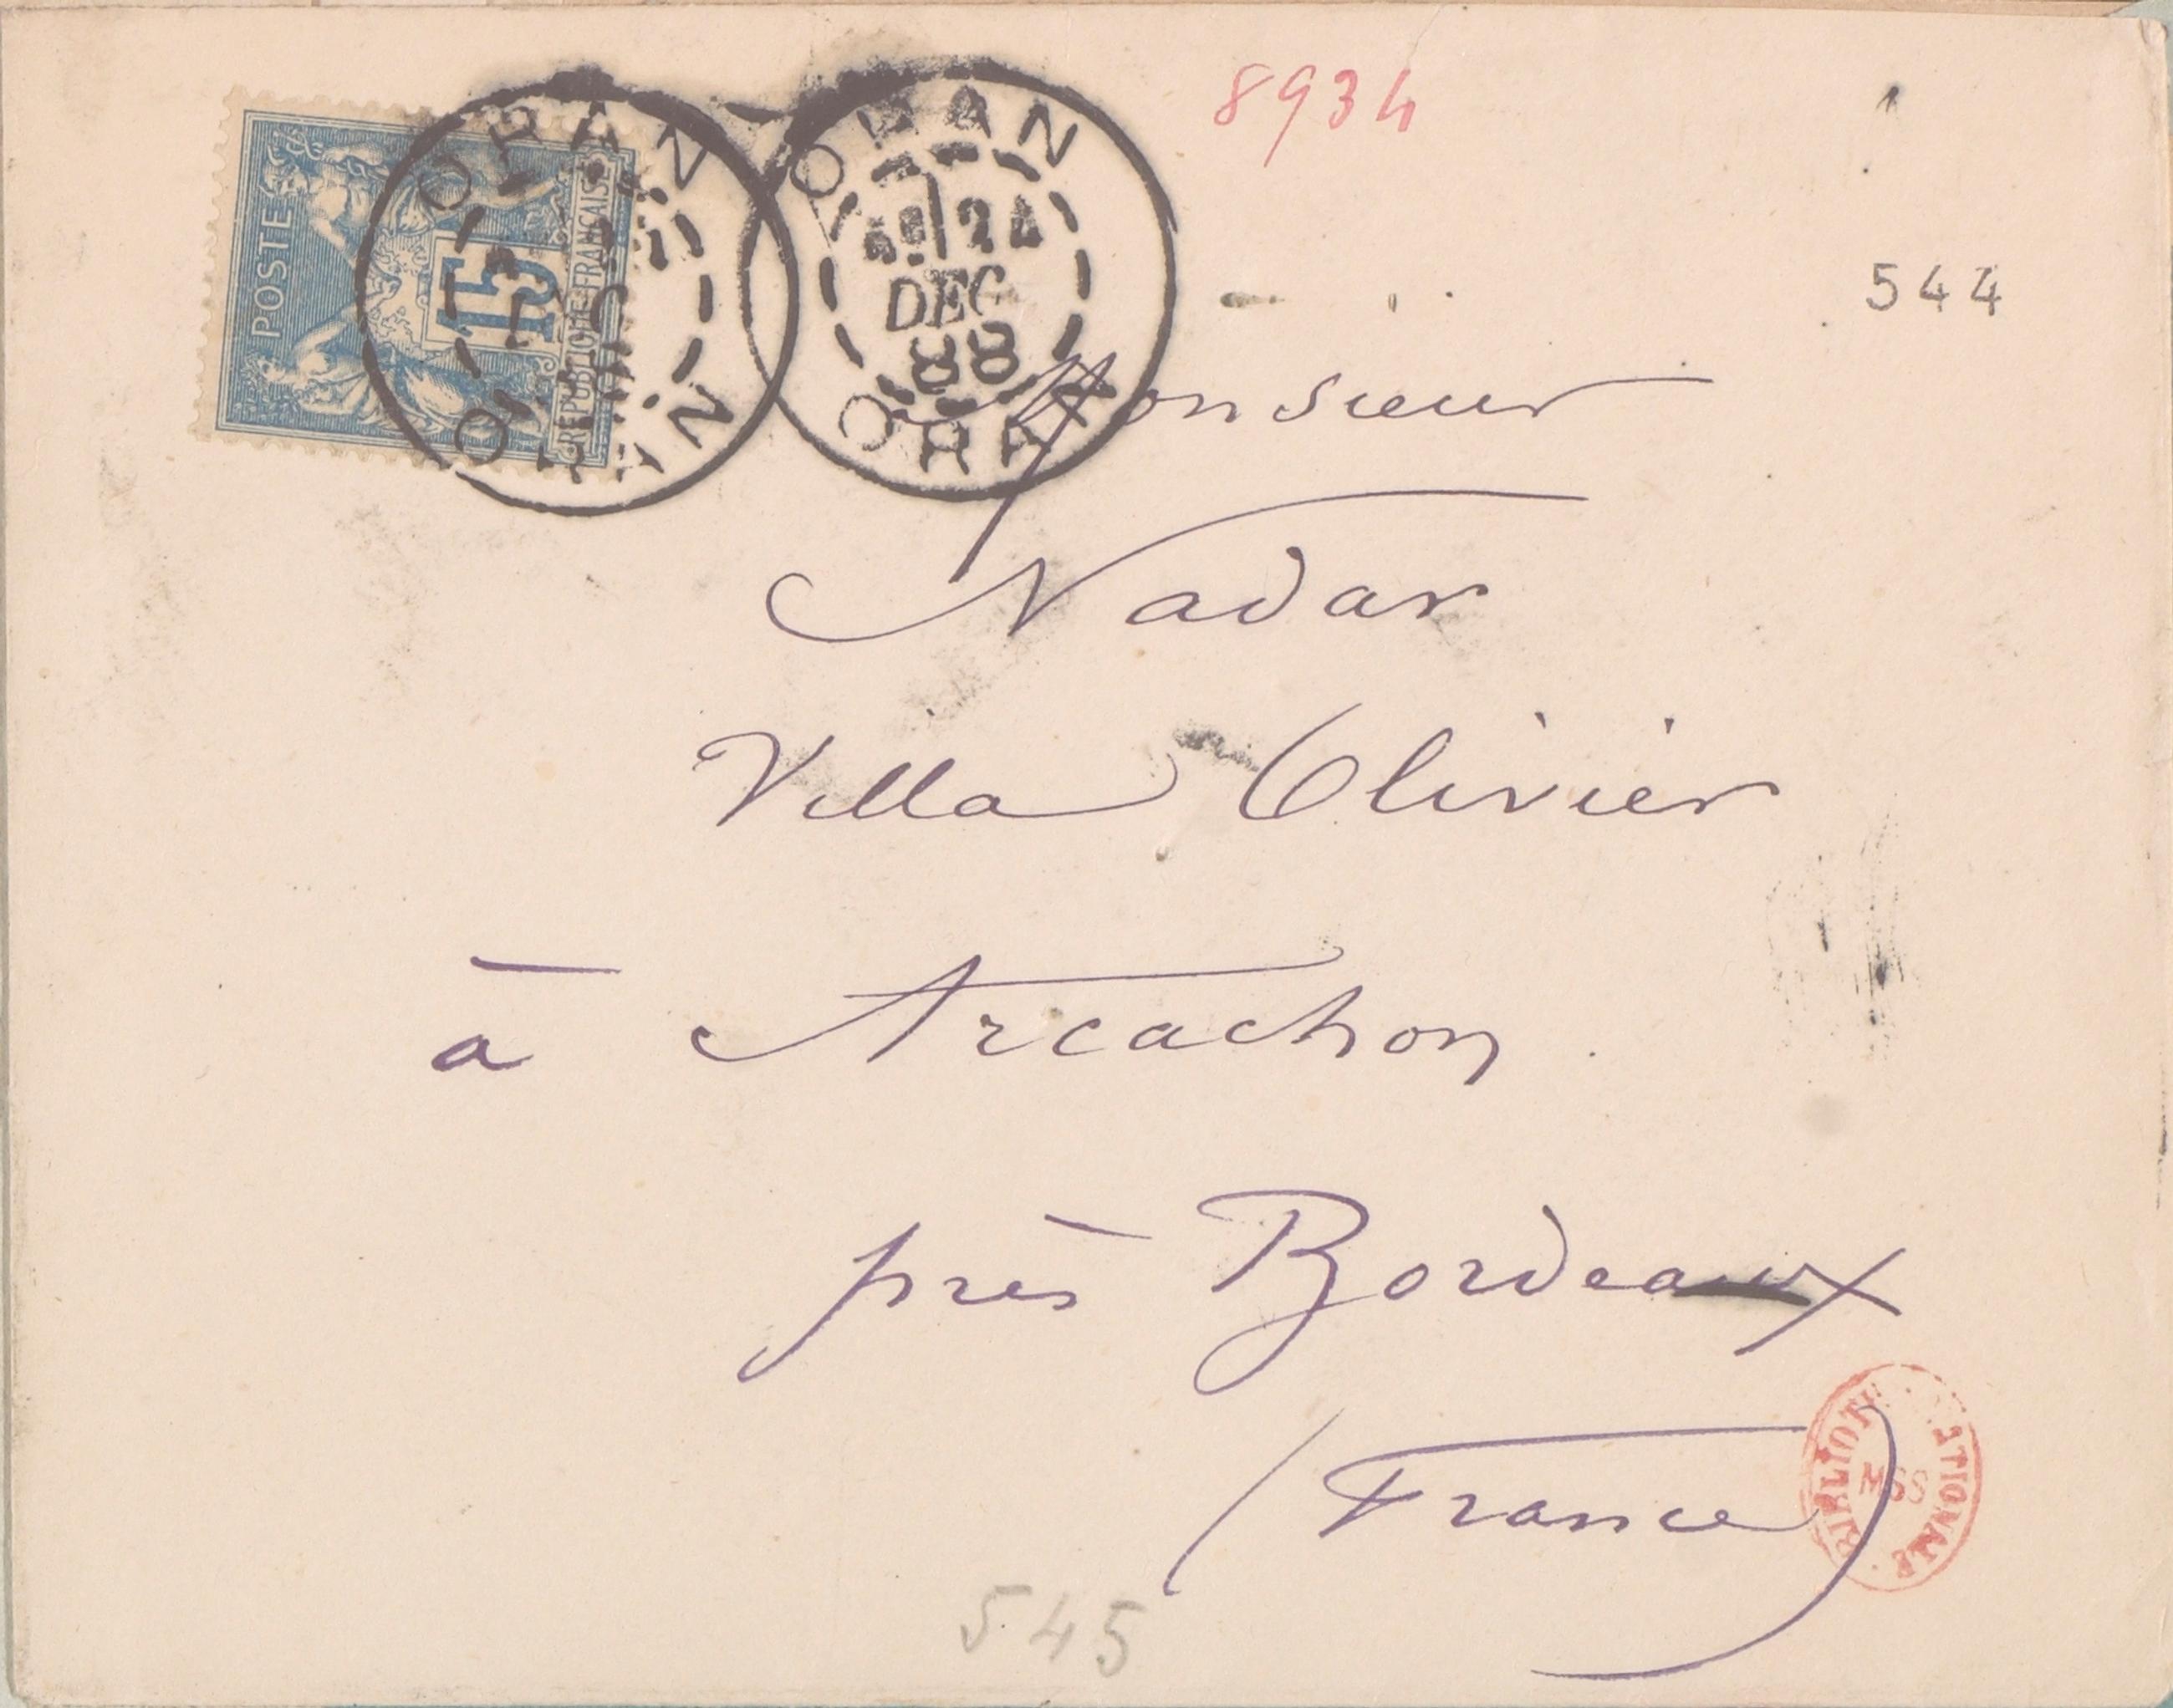 8934
POSTES
15
REPUBLIQUE FRANÇAISE
ORAN
ORAN
ORAN
24
DEC
88
ORAN
544
Monsieur
Nadar
Villa Olivier
à Arcachon
près Bordeaux
(France)
MSS
545